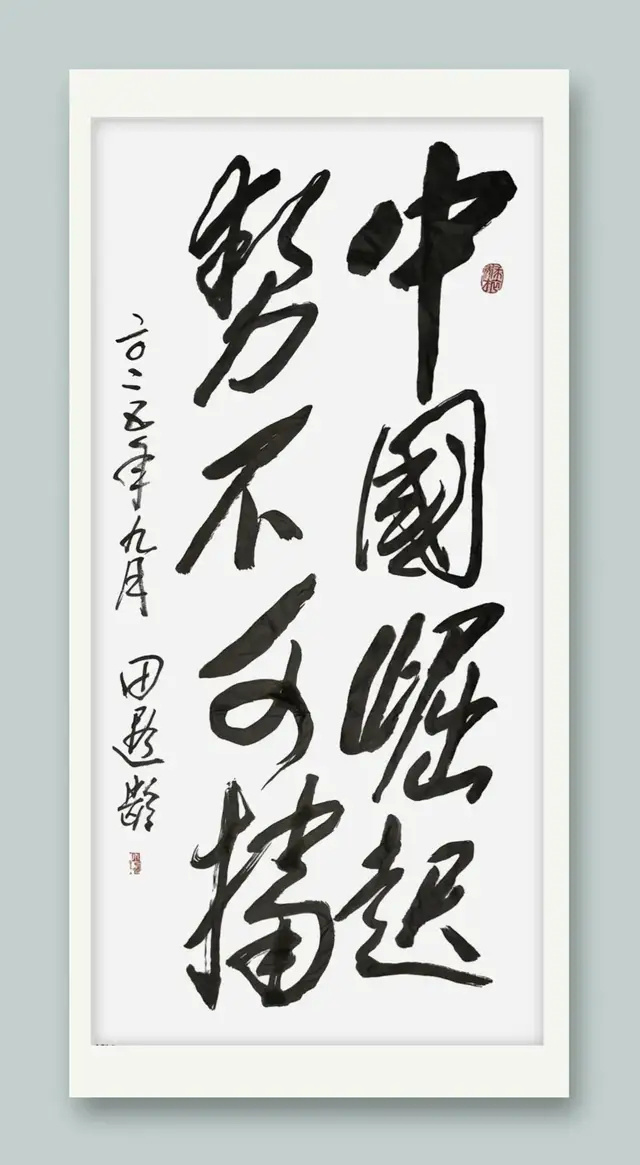 中國崛起
勢不可擋
二〇二五年九月 田遐齡